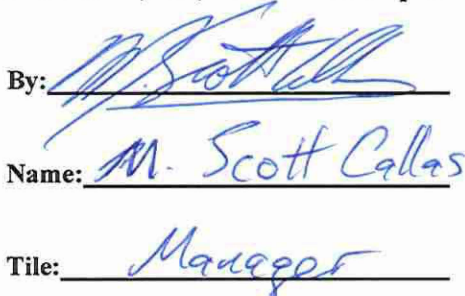 By: M. Scott Callas
Name: M. Scott Callas
Tile: Manager